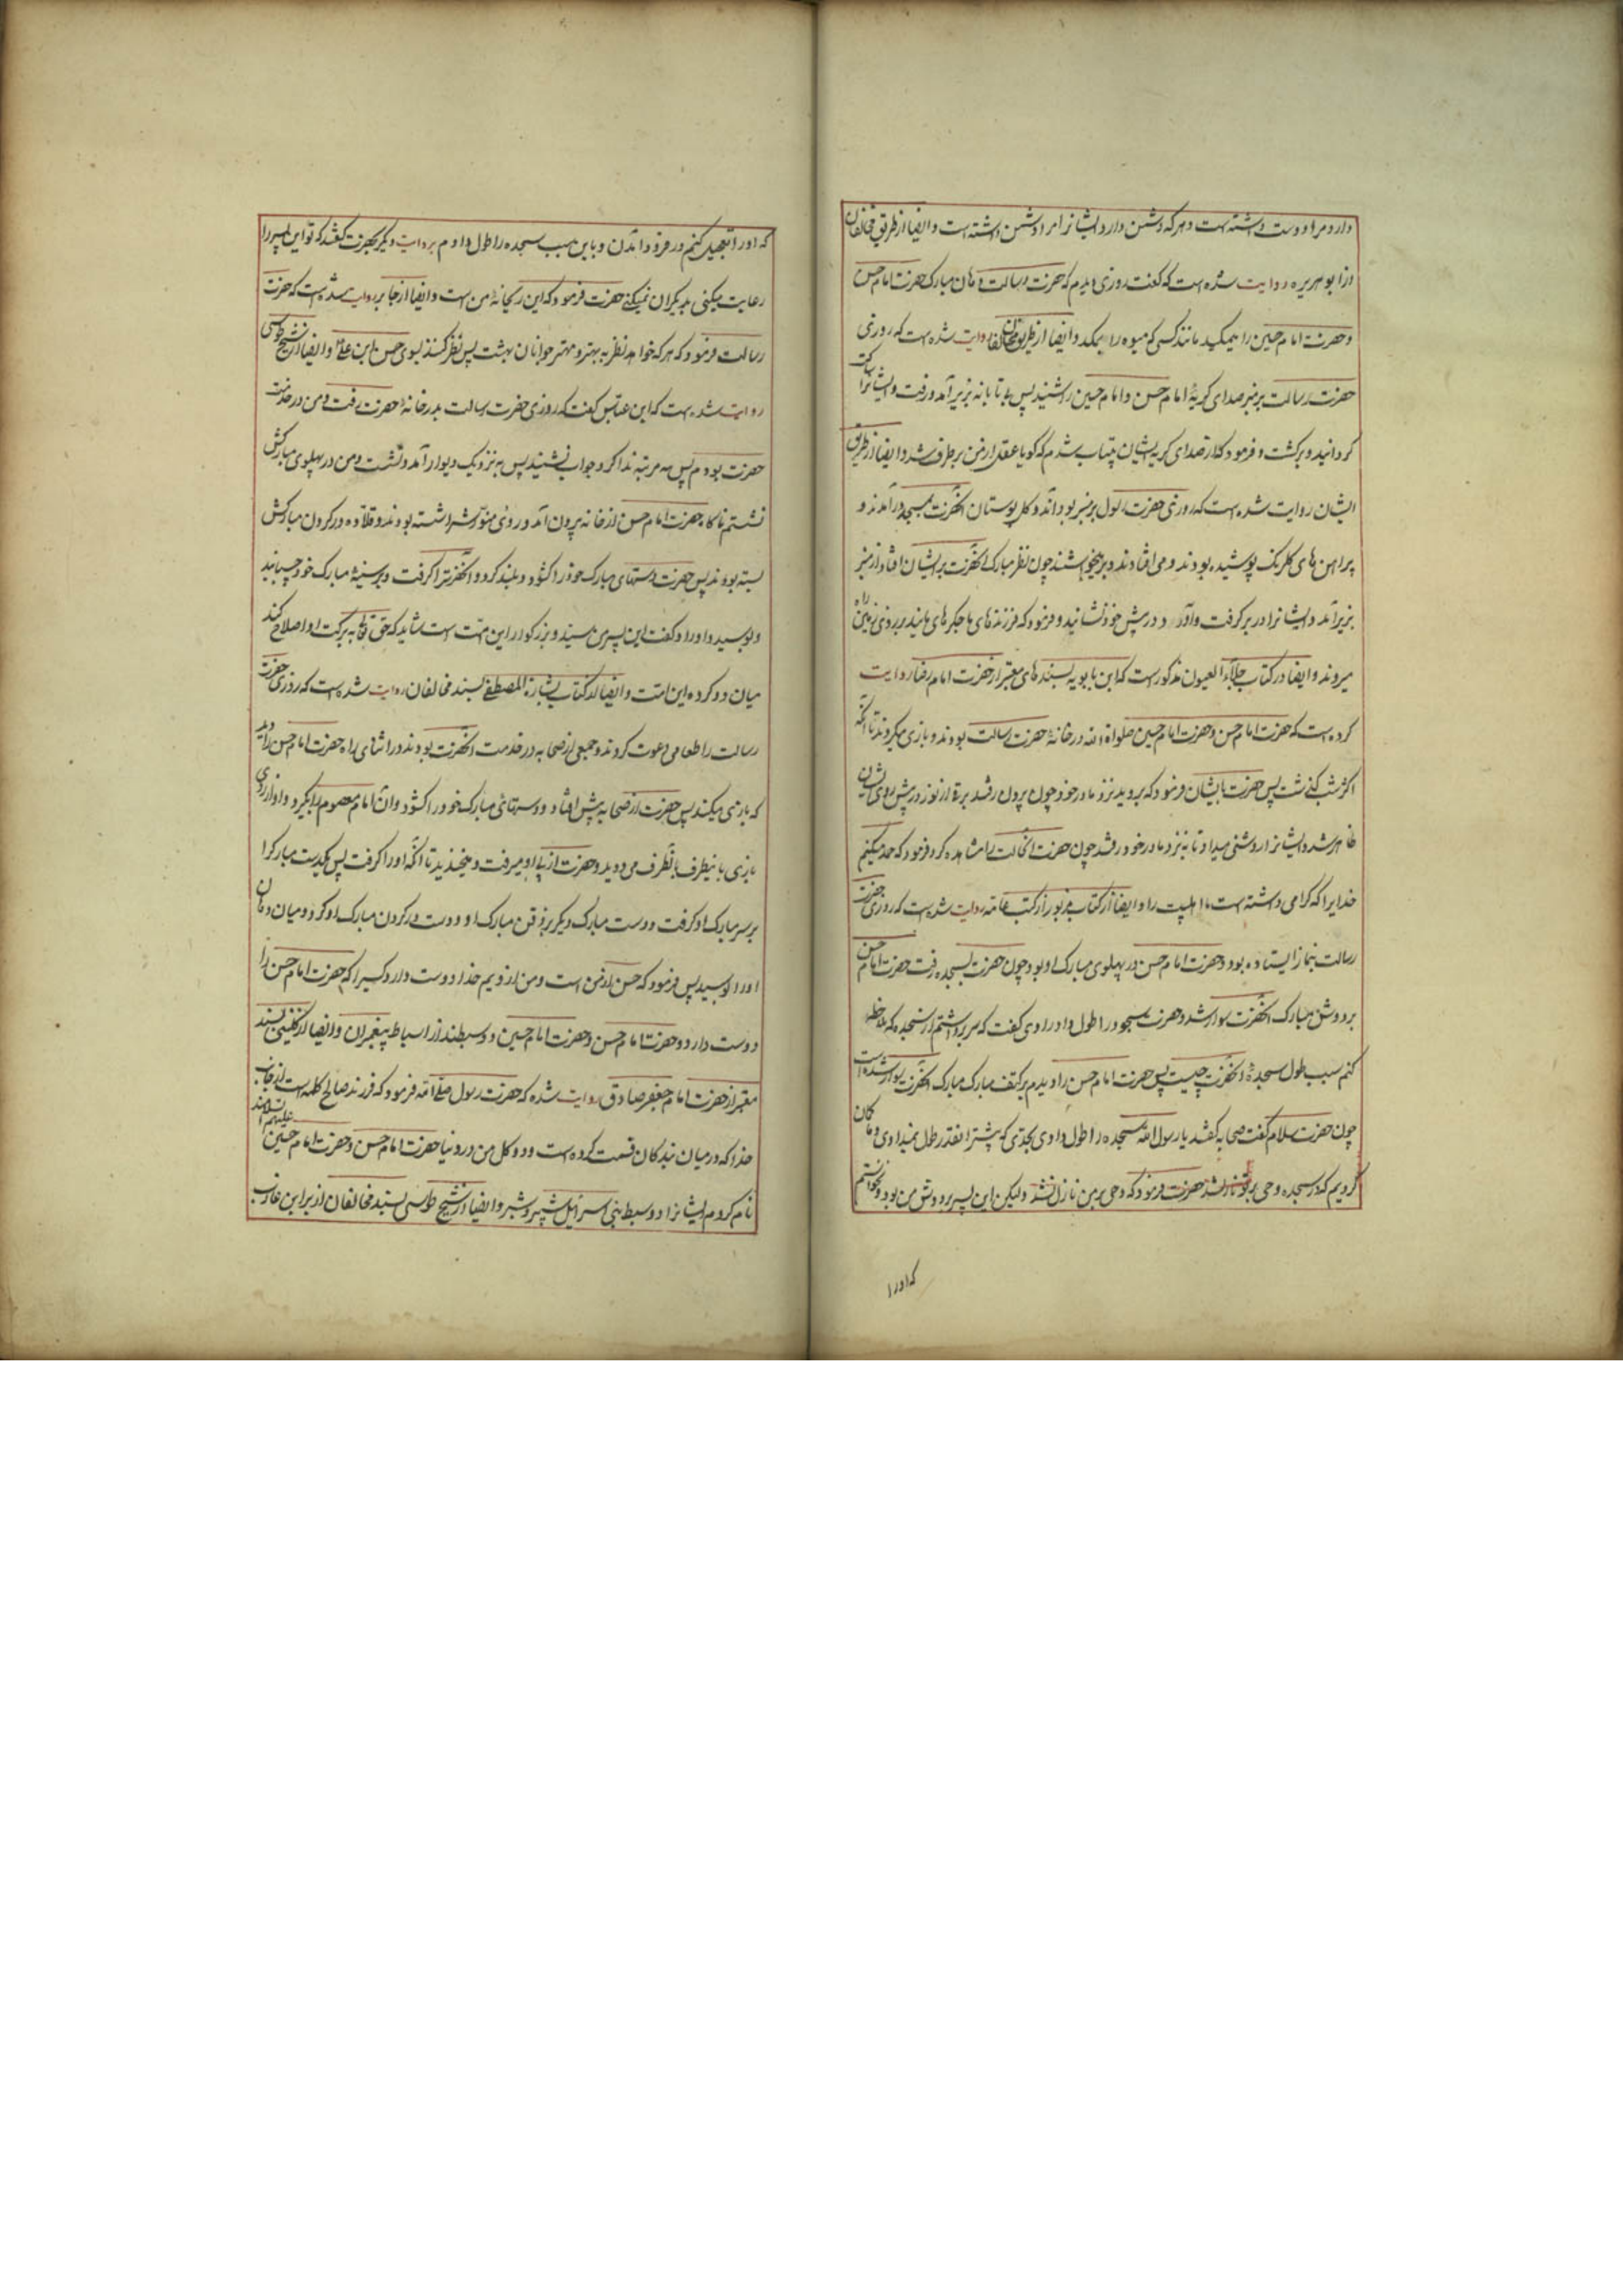 دارد مرا دوست داشته است و هر که دشمن دارد ایشانرا مرا دشمن داشته است و ایضا از طریق مخالفان
از ابو هریره روایت شده است که گفت روزی دیدم که حضرت رسالت دهان مبارک حضرت امام حسن
و حضرت امام حسین را میمکید مانند کسی که میوه را بمکد و ایضا از طریق مخالفان روایت شده است که روزی
حضرت رسالت بر منبر صدای گریهٔ امام حسن و امام حسین را شنید پس بیتابانه بزیر آمد و رفت و ایشانرا ساکت
گردانید و برگشت و فرمود که از صدای گریه ایشان چنین بیتاب شدم که گویا عقل از من برطرف شد و ایضا از طریق
ایشان روایت شده است که روزی حضرت رسول بر منبر بود آندو گل بوستان آنحضرت بمسجد در آمدند و
پیراهن های گلرنگ پوشیده بودند و می افتادند و برمیخواستند چون نظر مبارک آنحضرت بر ایشان افتاد از منبر
بزیر آمد و ایشانرا در بر گرفت و آورد و در پیش خود نشانید و فرمود که فرزندهای ما جگرهای مایند بر روی زمین راه
میروند و ایضا در کتاب جلاء العیون مذکور است که ابن بابویه بسندهای معتبر از حضرت امام رضا روایت
کرده است که حضرت امام حسن و حضرت امام حسین صلواة الله در خانهٔ حضرت رسالت بودند و بازی میکردند تا آنکه
اکثر شب گذشت پس حضرت بایشان فرمود که بروید نزد مادر خود چون بیرون رفتند برقی از نور در پیش روی ایشان
ظاهر شد و ایشانرا روشنی میداد تا به نزد مادر خود رفتند چون حضرت آنحالت را مشاهده کرد فرمود که حمد میکنیم
خدایرا که گرامی داشته است ما اهلبیت را و ایضا از کتاب مزبور از کتب عامه روایت شده است که روزی حضرت
رسالت بنماز ایستاده بود و حضرت امام حسن در پهلوی مبارک او بود چون حضرت بسجده رفت حضرت امام حسن
بر دوش مبارک آنحضرت سوار شد و حضرت سجود را طول داد راوی گفت که سر برداشتم از سجده که ملاحظه
کنم سبب طول سجدهٔ آنحضرت چیست پس حضرت امام حسن را دیدم بر کتف مبارک مبارک آنحضرت سوار شده است
چون حضرت سلام گفت صحابه گفتند یا رسول الله سجده را طول دادی بحدی که پیشتر آنقدر طول نمیدادی و ما گمان
کردیم که در سجده وحی بر تو نازل شد حضرت فرمود که وحی بر من نازل نشد ولیکن این پسر بر دوش من بود و نخواستم
که او را
که او را تعجیل کنم در فرود آمدن و باین سبب سجده را طول دادم بروایت دیگر بحضرت گفتند که تو این پسر را
رعایت میکنی بدیگران نمیکنی حضرت فرمود که این ریحانهٔ من است و ایضا از جابر روایت شده است که حضرت
رسالت فرمود که هر که خواهد نظر به بهتر و مهتر جوانان بهشت پس نظر کند بسوی حسن ابن علی و ایضا از شیخ طوسی
روایت شده است که ابن عباس گفت که روزی حضرت رسالت بدر خانهٔ حضرت رفت و من در خدمت
حضرت بودم پس سه مرتبه ندا کرد و جواب نشنید پس به نزدیک دیوار آمد و نشست و من در پهلوی مبارکش
نشستم ناگاه حضرت امام حسن از خانه بیرون آمد و روی منورش را شسته بودند و قلاده در گردن مبارکش
بسته بودند پس حضرت دستهای مبارک خود را گشود و بلند کرد و آنحضرت را گرفت و بر سینهٔ مبارک خود چسبانید
و بوسید و او را و گفت این پسر من سید و بزرگوار این امت است شاید که حق تعالی به برکت او اصلاح کند
میان دو گروه این امت و ایضا از کتاب بشارة المصطفی بسند مخالفان روایت شده است که روزی حضرت
رسالت را طعامی دعوت کردند و جمعی از صحابه در خدمت آنحضرت بودند در اثنای راه حضرت امام حسن را دید
که بازی میکند پس حضرت از صحابه پیش افتاد و دستهای مبارک خود را گشود و آن امام معصوم را بگیرد و او از روی
بازی باینطرف بآنطرف می دوید و حضرت از پی او میرفت و میخندید تا آنکه او را گرفت پس یکدست مبارکرا
بر سر مبارک او گرفت و دست مبارک دیگر بر ذقن مبارک او و دست در گردن مبارک او کرد و میان دهان
او را بوسید پس فرمود که حسن از من است و من از ویم خدا دوست دارد کسیرا که حضرت امام حسن را
دوست دارد و حضرت امام حسن و حضرت امام حسین دو سبطند از اسباط پیغمبران و ایضا از کلینی بسند
معتبر از حضرت امام جعفر صادق روایت شده که حضرت رسول صلی الله فرمود که فرزند صالح گلست از جانب
خدا که در میان بندگان قسمت کرده است و دو گل من در دنیا حضرت امام حسن و حضرت امام حسین علیهم السلامند
نام کردم ایشانرا دو سبط بنی اسرائیل شبیر و شبر و ایضا از شیخ طوسی بسند مخالفان از براء ابن عازب